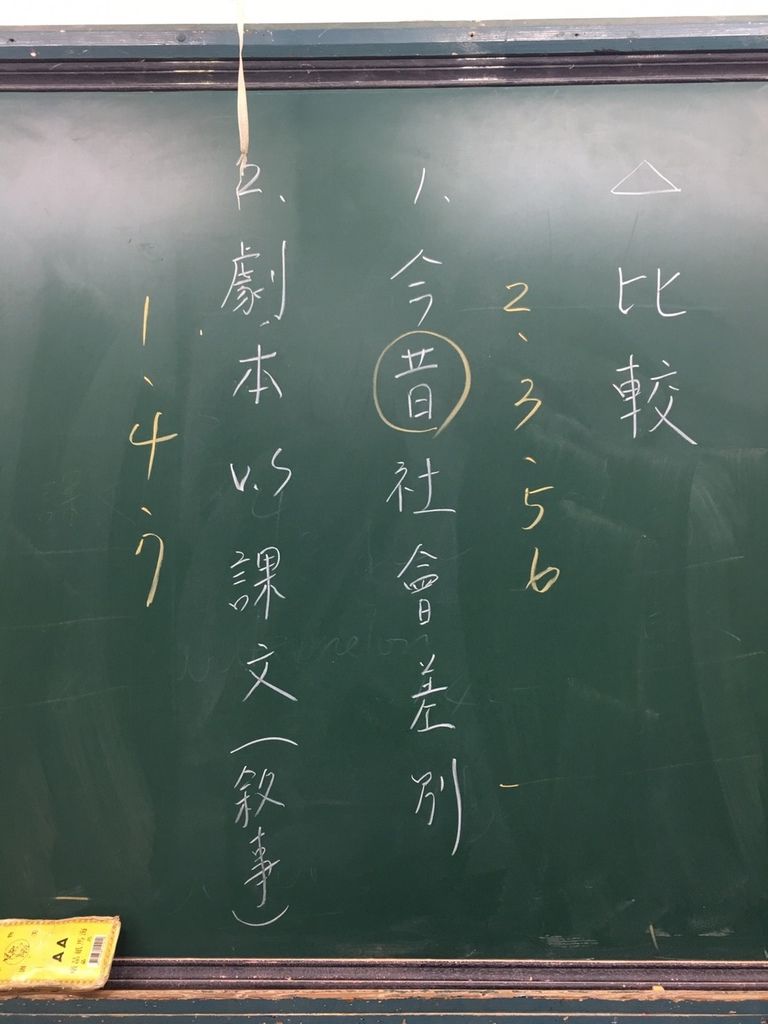 △比較
2、3、5 6
1、今昔社會差別
2、劇本 v.s 課文(敘事)
1、4、7
AA